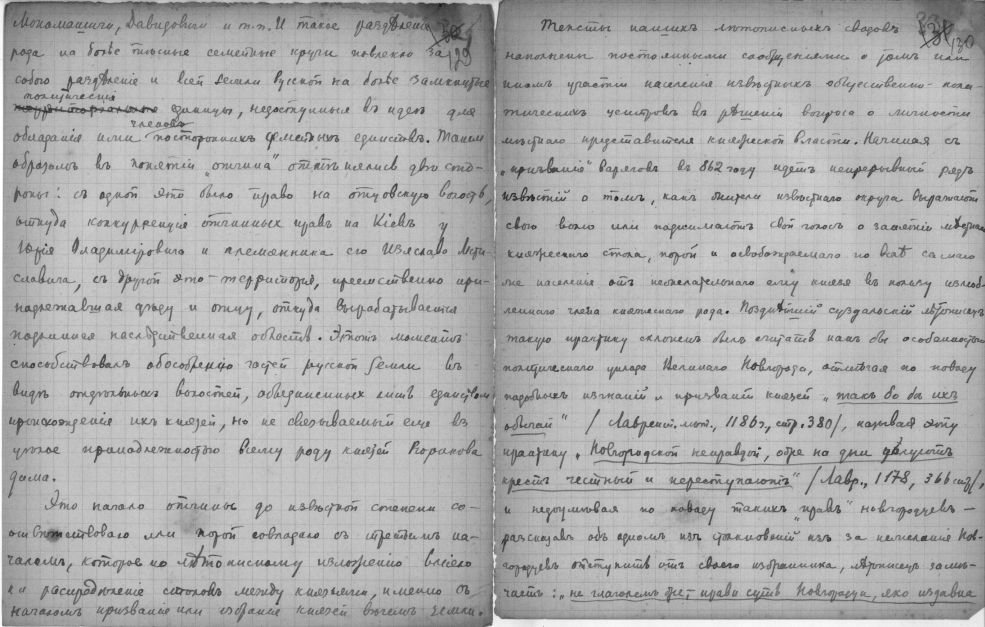 Мономашичи, Давидовичи и т.п. И такое раздѣление
129
рода на болѣе тѣсные семейные круги повлекло за
собою раздѣление и всей земли Русской на болѣе замкнутые
политическия
единицы, недоступныя въ идеѣ для
членовъ
обладания ими посторонних семейных единствъ. Таким
образомъ въ понятии „отчина" отттѣнялись двѣ сто-
роны: съ одной это было право на отцовскую волость,
откуда конкурренция отчинных правъ на Кіевъ у
Юрія Владиміровича и племянника его Изяслава Мсти-
славича, съ другой это – территорія, преемственно при-
надлежавшая дѣду и отцу, откуда вырабатывается
наслѣдственная область. Этотъ моментъ
способствовалъ обособленію частей русской земли въ
видѣ отдѣльныхъ волостей, объединенныхъ лишь единством
происхожденія ихъ князей, но не связываемый еще въ
цѣлое принадлежностью всему роду князей Рюрикова
дома.
Это начало отчины до извѣстной степени со-
отвѣтствовало или порой совпадало съ третьимъ на-
чаломъ, которое по лѣтописному изложению влияло
на распредѣление столовъ между князьями, именно съ
началомъ призвания или избрания князей вѣчемъ земли.
130
Тексты нашихъ лѣтописныхъ сводовъ
наполнены постоянными сообщениями о томъ или
иномъ участии населения извѣстныхъ общественно-поли-
тическихъ центровъ въ рѣшении вопроса о личности
мѣстнаго представителя княжеской власти. Начиная съ
„призвания" варяговъ въ 862 году идетъ непрерывный рядъ
извѣстий о томъ, какъ жители извѣстнаго округа выражаютъ
свою волю или поднимаютъ свой голосъ о занятии мѣстнаго
княжескаго стола, порой и освобождаемаго по волѣ самаго
же населения отъ нежелательнаго ему князя въ пользу излюб-
леннаго члена княжескаго рода. Позднѣйший суздальский лѣтописецъ
такую практику склоненъ былъ считать какъ бы особенностью
политическаго уклада Великаго Новгорода, отмѣчая по поводу
подобныхъ изгнаний и призваний князей „такъ бо бѣ ихъ
обычай" / Лаврент. лѣт., 1186 г., стр. 380/, называя эту
практику „Новгородской неправдой, оже на дни цѣлуютъ
крестъ честный и переступаютъ" / Лавр., 1178, 366 стр/,
и недоумѣвая по поводу такихъ „правъ" новгородцевъ –
разсказавъ объ одномъ изъ столкновений изъ за нежелания Нов-
городцевъ отступить отъ своего избранника, лѣтописецъ замѣ-
чаетъ: „не глаголемъ же, прави суть Новгородци, яко издавна